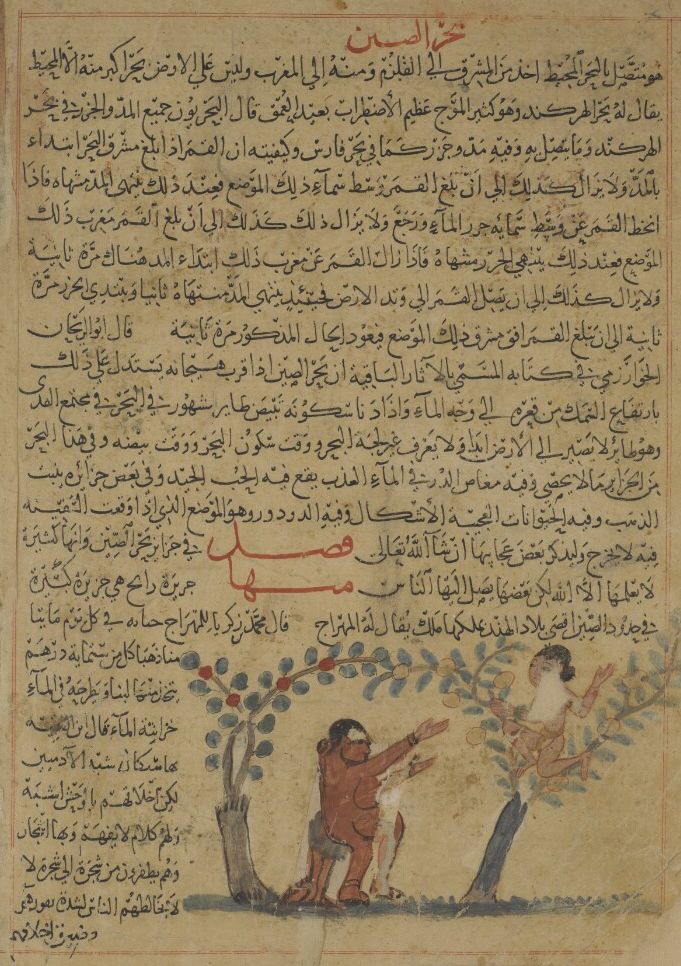 بحر الصين
هو متصل بالبحر المحيط اخذ من المشرق الى القلزم ومنه الى المغرب وليس على الارض بحر اكبر منه الا المحيط
يقال له بحر الهركند وهو كثير الموج عظيم الاضطراب بعيد العمق قال البحريون جميع المد والجزر في بحر
الهركند وما يتصل به وفيه مد وجزر كما في بحر فارس وكيفيته ان القمر اذا بلغ مشرق البحر ابتداء
بالمد ولا يزال كذلك الى ان بلغ القمر وسط سماء ذلك الموضع فعند ذلك ينتهى المد منتهاه فاذا
انحط القمر عن وسط سمايه جزر الماء ورجع ولا يزال ذلك كذلك الى ان بلغ القمر مغرب ذلك
الموضع فعند ذلك ينتهي الجزر منتهاه فاذا زال القمر عن مغرب ذلك ابتداء المد هناك مرة ثانية
ولا يزال كذلك الى ان يصل القمر الى وتد الارض فحينئذ ينتهى المد منتهاه ثانيا ويبتدي الجزر مرة
ثانية الى ان يبلغ القمر افق مشرق ذلك الموضع فيعود الحال المذكور مرة ثانية قال ابو الريحان
الخوارزمي في كتابه المسمى الاثار الباقية ان بحر الصين اذا قرب هيجانه يستدل على ذلك
بارتفاع السمك من قعره الى وجه الماء واذا دنا سكونه تبيض طاير مشهور في البحر في مجتمع القذى
وهو طاير لا يصير الى الارض ابدا ولا يعرف غير لجة البحر ووقت سكون البحر وقت بيضه وفي هذا البحر
من الجزاير ما لا يحصى وفيه مغاص الدر في الماء العذب يقع فيه الحب الجيد وفي بعض جزايره ينبت
الذهب وفيه الحيوانات العجيبة الاشكال وفيه الدردور وهو الموضع الذي اذا وقعت السفينه
فيه لا يخرج ولنذكر بعض عجايبها ان شا الله تعالى فصل في جزاير بحر الصين وانها كثيرة
لا يعلمها الا الله لكن بعضها يصل اليها الناس منها جزيرة رابح هي جزيرة كبيرة
في حدود الصين اقصى بلاد الهند يملكها ملك يقال له المهراج قال محمد بن زكريا للمهراج جبايه في كل يوم مايتا
منا ذهبا كل من ستماية درهم
يتخذ منها لبنا ويطرحه في الماء
خزانته الماء قال ابن الفقيه
بها سكان شبه الادميين
لكن اخلاقهم بالوحش اشبه
ولهم كلام لا يفهم وبها اشجار
وهم يطفرون من شجرة الى شجرة لا
يخالطهم الناس لشدة نفورهم